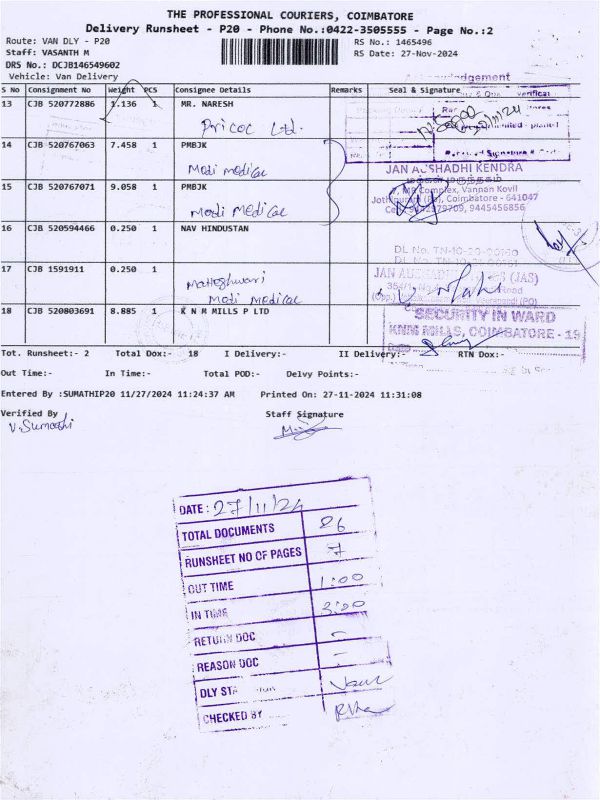 THE PROFESSIONAL COURIERS, COIMBATORE
Delivery Runsheet - P20 - Phone No.:0422-3505555 - Page No.:2
Route: VAN DLY - P20 RS No.: 1465496
Staff: VASANTH M RS Date: 27-Nov-2024
DRS No.: DCJB146549602
Vehicle: Van Delivery
S No Consignment No Weight PCS Consignee Details Remarks Seal & Signature
13 CJB 520772886 1.136 1 MR. NARESH
Pricol Ltd.
14 CJB 520767063 7.458 1 PMBJK
Modi medical
JAN AUSHADHI KENDRA
15 CJB 520767071 9.058 1 PMBJK
Complex, Vanpan Kovil
Coimbatore - 641047
Modi medical
9445456856
16 CJB 520594466 0.250 1 NAV HINDUSTAN
DL No. TN-10-20-00160
17 CJB 1591911 0.250 1
(JAS)
Modi medical
18 CJB 520803691 8.885 1 K N M MILLS P LTD
SECURITY IN WARD
KNM MILLS, COIMBATORE - 19
Tot. Runsheet:- 2 Total Dox:- 18 I Delivery:- II Delivery:- RTN Dox:-
Out Time:- In Time:- Total POD:- Delvy Points:-
Entered By :SUMATHIP20 11/27/2024 11:24:37 AM Printed On: 27-11-2024 11:31:08
Verified By Staff Signature
V. Sumathi
DATE: 27/11/24
TOTAL DOCUMENTS 86
RUNSHEET NO OF PAGES 7
OUT TIME 1:00
IN TIME 3:00
RETURN DOC -
REASON DOC -
DLY
CHECKED BY